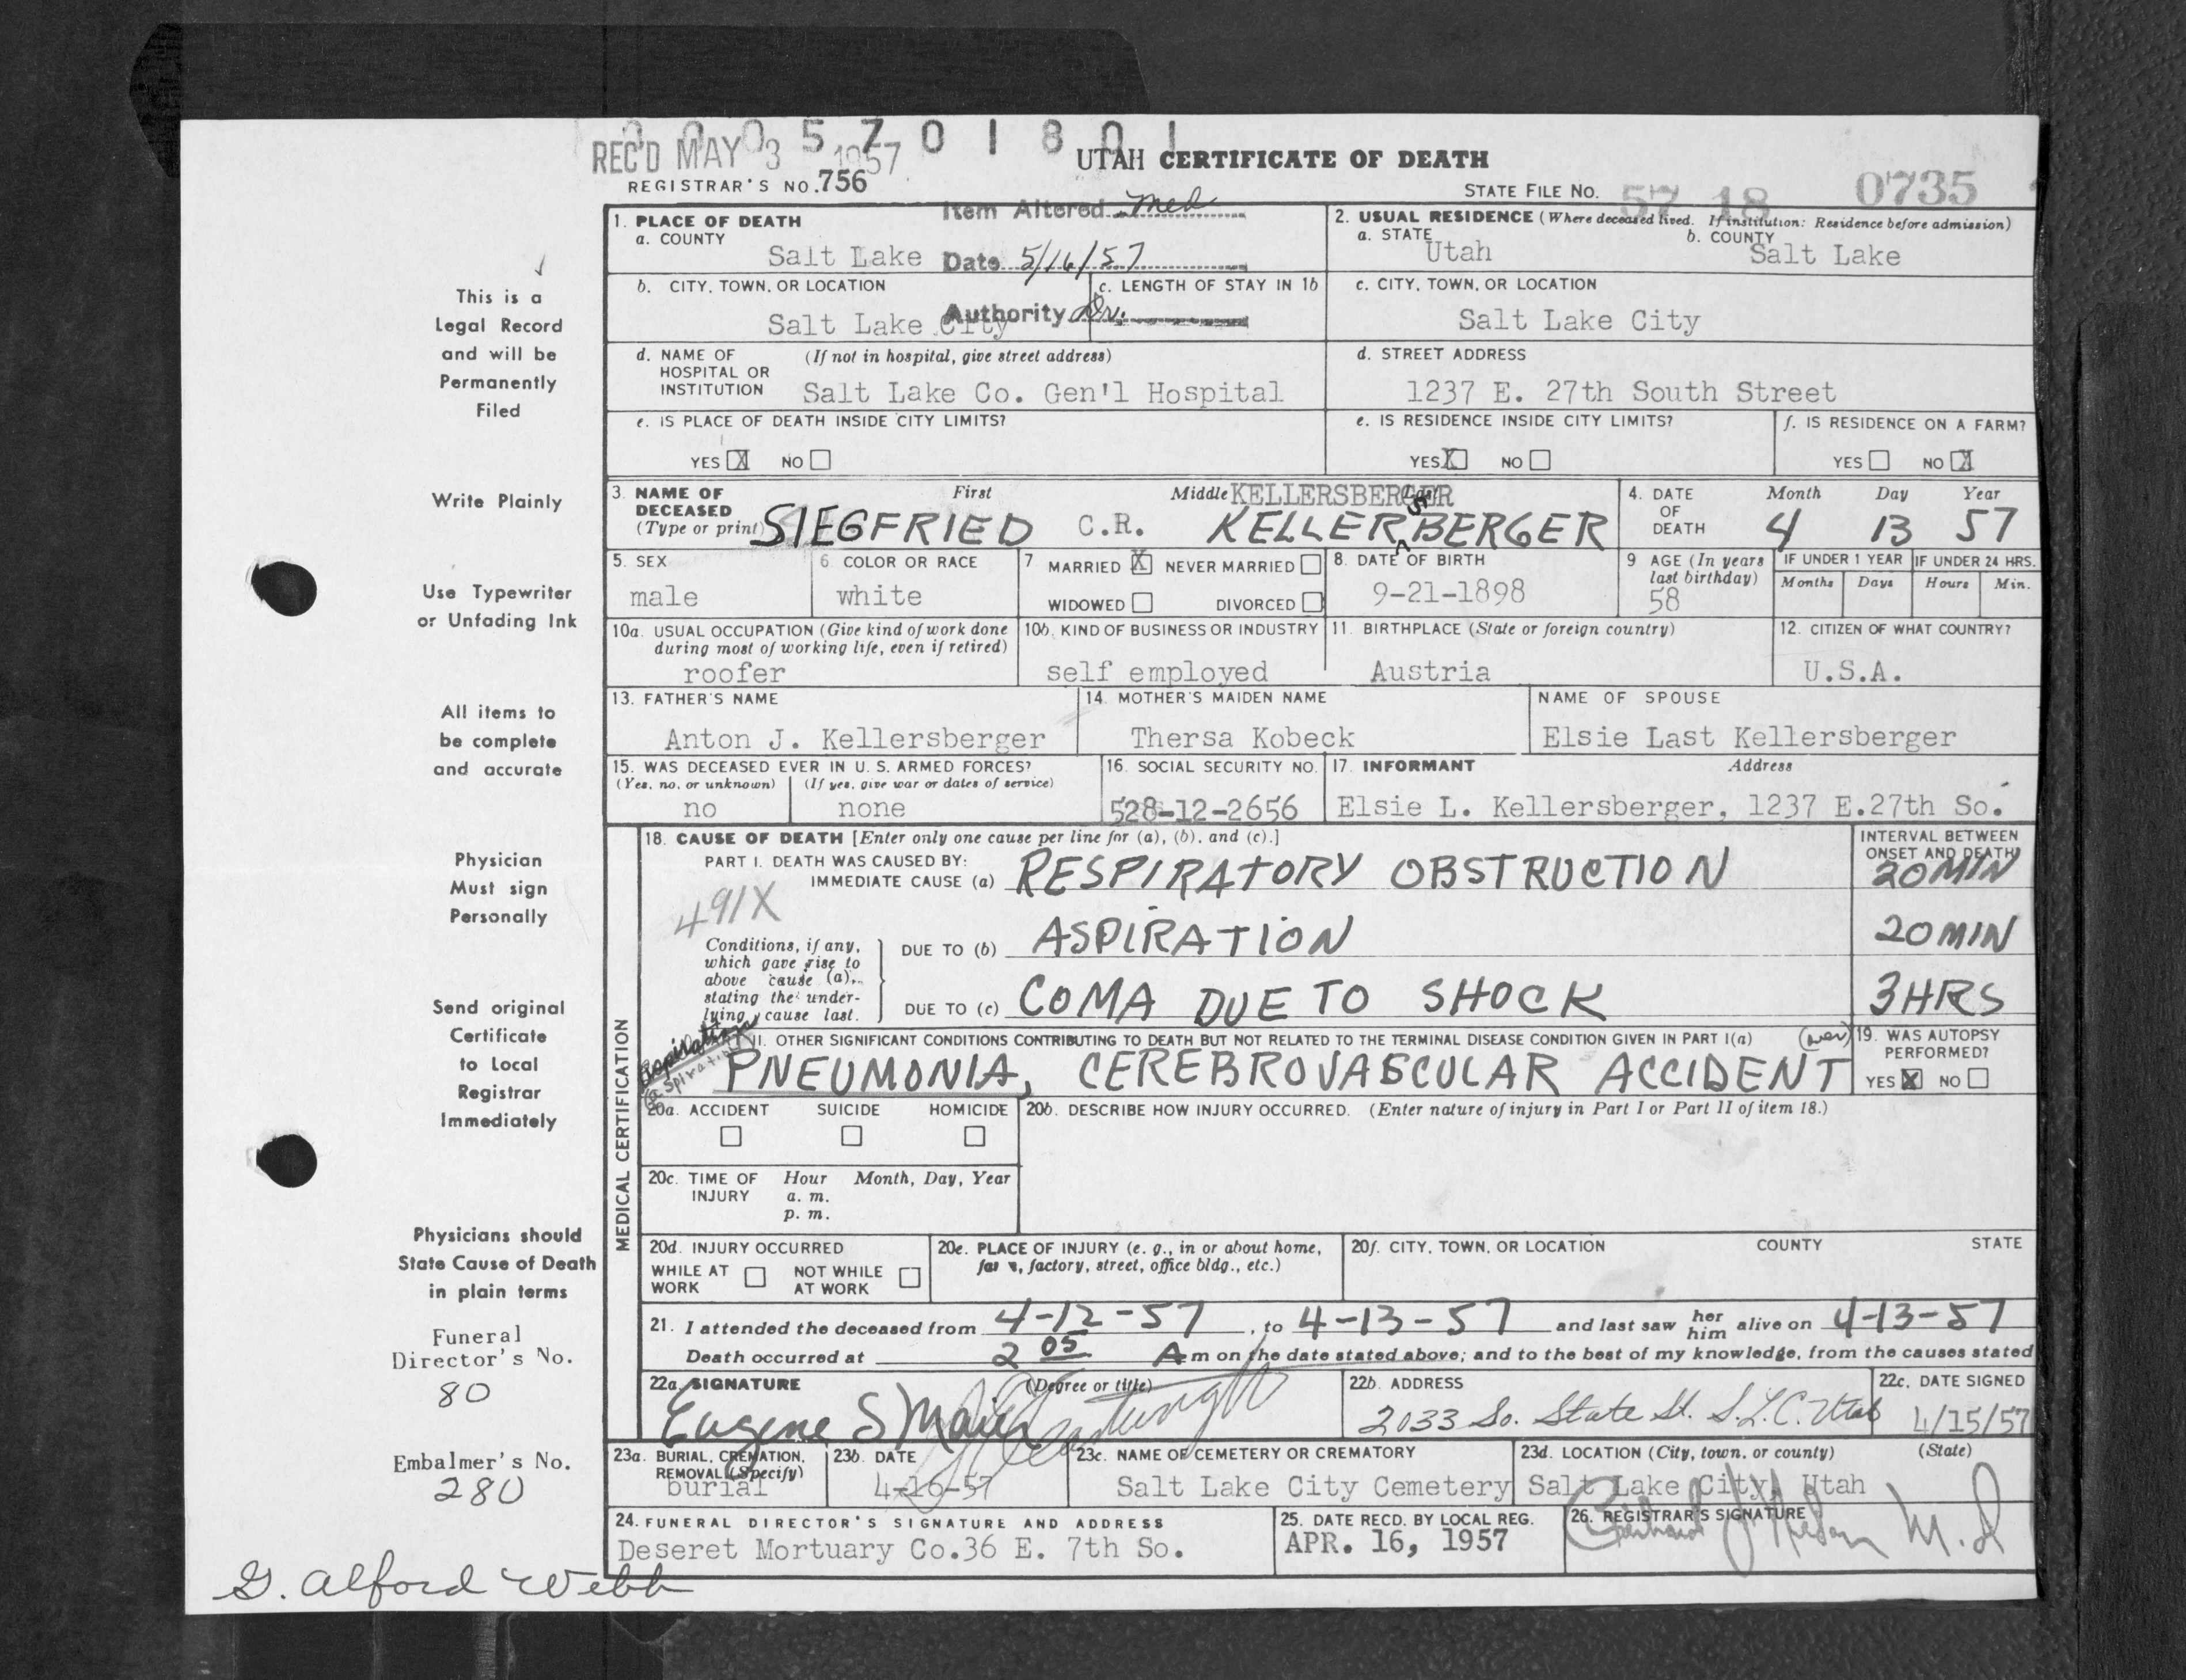 0 0 0 5 7 0 1 8 0 1
REC'D MAY 3 1957
UTAH CERTIFICATE OF DEATH
REGISTRAR'S NO. 756
STATE FILE NO. 57 18 0735
Item Altered Med
Date 5/16/57
Authority Dr.
This is a
Legal Record
and will be
Permanently
Filed
Write Plainly
Use Typewriter
or Unfading Ink
All items to
be complete
and accurate
Physician
Must sign
Personally
Send original
Certificate
to Local
Registrar
Immediately
Physicians should
State Cause of Death
in plain terms
Funeral
Director's No.
80
Embalmer's No.
280
G. Alford Webb
1. PLACE OF DEATH
a. COUNTY
Salt Lake
b. CITY, TOWN, OR LOCATION
Salt Lake City
c. LENGTH OF STAY IN 1b
d. NAME OF (If not in hospital, give street address)
HOSPITAL OR
INSTITUTION Salt Lake Co. Gen'l Hospital
e. IS PLACE OF DEATH INSIDE CITY LIMITS?
YES X NO
2. USUAL RESIDENCE (Where deceased lived. If institution: Residence before admission)
a. STATE b. COUNTY
Utah Salt Lake
c. CITY, TOWN, OR LOCATION
Salt Lake City
d. STREET ADDRESS
1237 E. 27th South Street
e. IS RESIDENCE INSIDE CITY LIMITS?
YES X NO
f. IS RESIDENCE ON A FARM?
YES NO X
3. NAME OF DECEASED (Type or print) First Middle Last
KELLERSBERGER
SIEGFRIED C.R. KELLERSBERGER
4. DATE OF DEATH Month Day Year
4 13 57
5. SEX
male
6 COLOR OR RACE
white
7 MARRIED X NEVER MARRIED
WIDOWED DIVORCED
8. DATE OF BIRTH
9-21-1898
9 AGE (In years last birthday)
58
IF UNDER 1 YEAR IF UNDER 24 HRS.
Months Days Hours Min.
10a. USUAL OCCUPATION (Give kind of work done
during most of working life, even if retired)
roofer
10b. KIND OF BUSINESS OR INDUSTRY
self employed
11. BIRTHPLACE (State or foreign country)
Austria
12. CITIZEN OF WHAT COUNTRY?
U.S.A.
13. FATHER'S NAME
Anton J. Kellersberger
14. MOTHER'S MAIDEN NAME
Thersa Kobeck
NAME OF SPOUSE
Elsie Last Kellersberger
15. WAS DECEASED EVER IN U. S. ARMED FORCES?
(Yes, no, or unknown) (If yes, give war or dates of service)
no none
16. SOCIAL SECURITY NO.
528-12-2656
17. INFORMANT Address
Elsie L. Kellersberger, 1237 E.27th So.
MEDICAL CERTIFICATION
18. CAUSE OF DEATH [Enter only one cause per line for (a), (b), and (c).]
INTERVAL BETWEEN
ONSET AND DEATH
PART I. DEATH WAS CAUSED BY:
IMMEDIATE CAUSE (a) RESPIRATORY OBSTRUCTION 20 MIN
491X
Conditions, if any,
which gave rise to
above cause (a),
stating the under-
lying cause last.
DUE TO (b) ASPIRATION 20 MIN
DUE TO (c) COMA DUE TO SHOCK 3 HRS
II. OTHER SIGNIFICANT CONDITIONS CONTRIBUTING TO DEATH BUT NOT RELATED TO THE TERMINAL DISEASE CONDITION GIVEN IN PART I(a) (over)
Aspiration
(aspiration)
PNEUMONIA, CEREBROVASCULAR ACCIDENT
19. WAS AUTOPSY
PERFORMED?
YES X NO
20a. ACCIDENT SUICIDE HOMICIDE
20b. DESCRIBE HOW INJURY OCCURRED. (Enter nature of injury in Part I or Part II of item 18.)
20c. TIME OF INJURY Hour Month, Day, Year
a. m.
p. m.
20d. INJURY OCCURRED
WHILE AT WORK NOT WHILE AT WORK
20e. PLACE OF INJURY (e. g., in or about home,
farm, factory, street, office bldg., etc.)
20f. CITY, TOWN, OR LOCATION COUNTY STATE
21. I attended the deceased from 4-12-57, to 4-13-57 and last saw her him alive on 4-13-57
Death occurred at 2 05 A m on the date stated above; and to the best of my knowledge, from the causes stated
22a. SIGNATURE (Degree or title)
Eugene S Maier
22b. ADDRESS
2033 So. State St. S.L.C. Utah
22c. DATE SIGNED
4/15/57
23a. BURIAL, CREMATION,
REMOVAL (Specify)
burial
23b. DATE
4-16-57
23c. NAME OF CEMETERY OR CREMATORY
Salt Lake City Cemetery
23d. LOCATION (City, town, or county) (State)
Salt Lake City, Utah
24. FUNERAL DIRECTOR'S SIGNATURE AND ADDRESS
Deseret Mortuary Co.36 E. 7th So.
25. DATE RECD. BY LOCAL REG.
APR. 16, 1957
26. REGISTRAR'S SIGNATURE
M.D